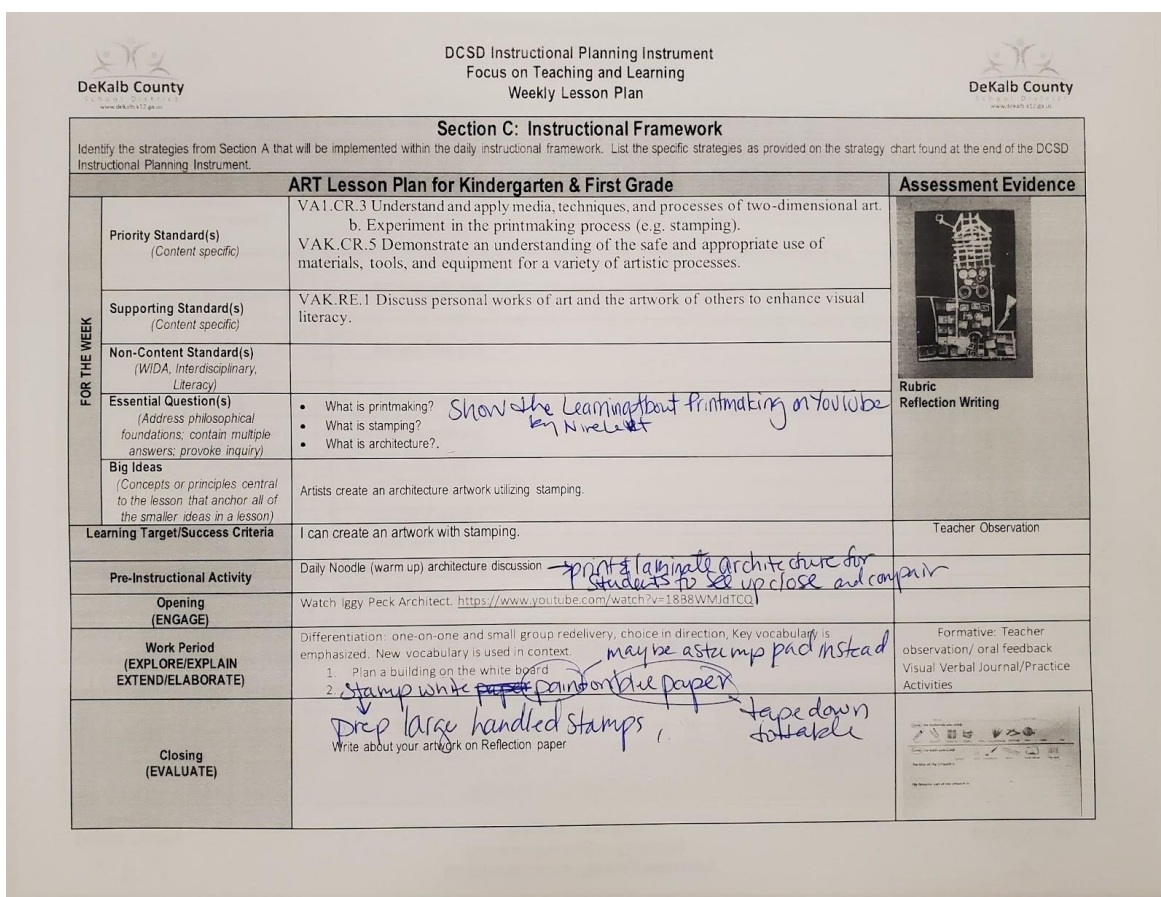 DCSD Instructional Planning Instrument
Focus on Teaching and Learning
Weekly Lesson Plan
DeKalb County
School District
www.dekalb.k12.ga.us
DeKalb County
School District
www.dekalb.k12.ga.us
Section C: Instructional Framework
Identify the strategies from Section A that will be implemented within the daily instructional framework. List the specific strategies as provided on the strategy chart found at the end of the DCSD
Instructional Planning Instrument.
ART Lesson Plan for Kindergarten & First Grade
Assessment Evidence
FOR THE WEEK
Priority Standard(s)
(Content specific)
VA1.CR.3 Understand and apply media, techniques, and processes of two-dimensional art.
b. Experiment in the printmaking process (e.g. stamping).
VAK.CR.5 Demonstrate an understanding of the safe and appropriate use of
materials, tools, and equipment for a variety of artistic processes.
Supporting Standard(s)
(Content specific)
VAK.RE.1 Discuss personal works of art and the artwork of others to enhance visual
literacy.
Non-Content Standard(s)
(WIDA, Interdisciplinary,
Literacy)
Rubric
Reflection Writing
Essential Question(s)
(Address philosophical
foundations; contain multiple
answers; provoke inquiry)
• What is printmaking? Show the Learning About Printmaking on YouTube
• What is stamping? by
• What is architecture?.
Big Ideas
(Concepts or principles central
to the lesson that anchor all of
the smaller ideas in a lesson)
Artists create an architecture artwork utilizing stamping.
Learning Target/Success Criteria
I can create an artwork with stamping.
Teacher Observation
Pre-Instructional Activity
Daily Noodle (warm up) architecture discussion → print & laminate architecture for
students to see up close and compair
Opening
(ENGAGE)
Watch Iggy Peck Architect. https://www.youtube.com/watch?v=18B8WMJdTCQ
Work Period
(EXPLORE/EXPLAIN
EXTEND/ELABORATE)
Differentiation: one-on-one and small group redelivery, choice in direction, Key vocabulary is
emphasized. New vocabulary is used in context.
maybe a stamp pad instead
1. Plan a building on the white board
2. Stamp white paint on blue paper
Formative: Teacher
observation/ oral feedback
Visual Verbal Journal/Practice
Activities
Closing
(EVALUATE)
prep large handled stamps,
tape down
to table
Write about your artwork on Reflection paper